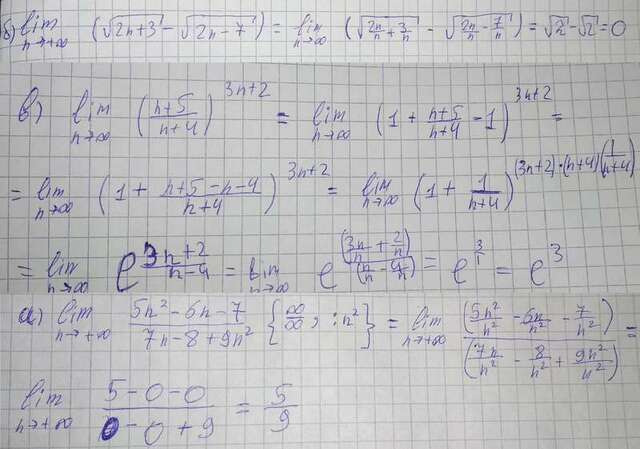 б) lim n→∞ (√(2n+3) − √(2n−7)) = lim n→∞ (√(2n/n + 3/n) − √(2n/n − 7/n)) = √2 − √2 = 0
в) lim n→∞ ((n+5)/(n+4))^(3n+2) = lim n→∞ (1 + (n+5)/(n+4) − 1)^(3n+2) =
= lim n→∞ (1 + (n+5−n−4)/(n+4))^(3n+2) = lim n→∞ (1 + 1/(n+4))^((3n+2)·(n+4)(1/(n+4)))
= lim n→∞ e^((3n+2)/(n−4)) = lim n→∞ e^((3n/n + 2/n)/(n/n − 4/n)) = e^(3/1) = e^3
а) lim n→+∞ (5n²−6n−7)/(7n−8+9n²) {∞/∞; :n²} = lim n→+∞ (5n²/n² − 6n/n² − 7/n²)/(7n/n² − 8/n² + 9n²/n²) =
lim n→+∞ (5−0−0)/(0−0+9) = 5/9